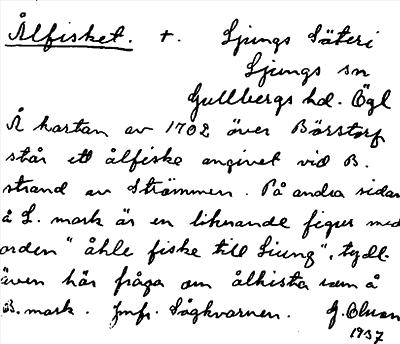 Ålfisket. +. Ljungs Säteri
Ljungs sn
Gullbergs hd. Ögl
Å kartan av 1702 över Börstorp
står ett ålfiske angivet vid B.
strand av Strömmen. På andra sidan
å L. mark är en liknande figur med
orden "åhle fiske till Liung", tydl.
även här fråga om ålkista som å
B. mark. Jmfr. Sågkvarnen. G. Olson
1937